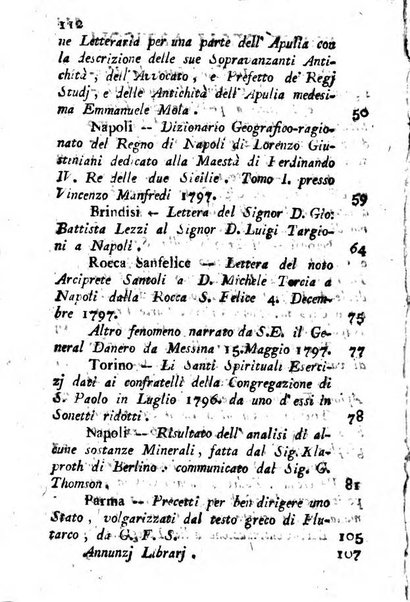 112
ne Letteraria per una parte dell' Apulia con
la descrizione delle sue Sopravanzanti Anti-
chità, dell' Avvocato, e Prefetto de' Regj
Studj, e delle Antichità dell' Apulia medesi-
ma Emmanuele Mola. 50
Napoli -- Dizionario Geografico-ragio-
nato del Regno di Napoli di Lorenzo Giu-
stiniani dedicato alla Maestà di Ferdinando
IV. Re delle due Sicilie. Tomo I. presso
Vincenzo Manfredi 1797. 59
Brindisi -- Lettera del Signor D. Gio:
Battista Lezzi al Signor D. Luigi Targio-
ni a Napoli. 64
Rocca Sanfelice -- Lettera del noto
Arciprete Santoli a D. Michele Torcia a
Napoli dalla Rocca S. Felice 4. Decem-
bre 1797. 75
Altro fenomeno narrato da S. E. il Ge-
neral Danero da Messina 15. Maggio 1797. 77
Torino -- Li Santi Spirituali Eserci-
zj dati ai confratelli della Congregazione di
S. Paolo in Luglio 1796. da uno d'essi in
Sonetti ridotti. 78
Napoli -- Risultato dell' analisi di al-
cune sostanze Minerali, fatta dal Sig. Kla-
proth di Berlino: communicato dal Sig. G.
Thomson. 81
Parma -- Precetti per ben dirigere uno
Stato, volgarizzati dal testo greco di Plu-
tarco, da G. F. S. 105
Annunzj Librarj. 107